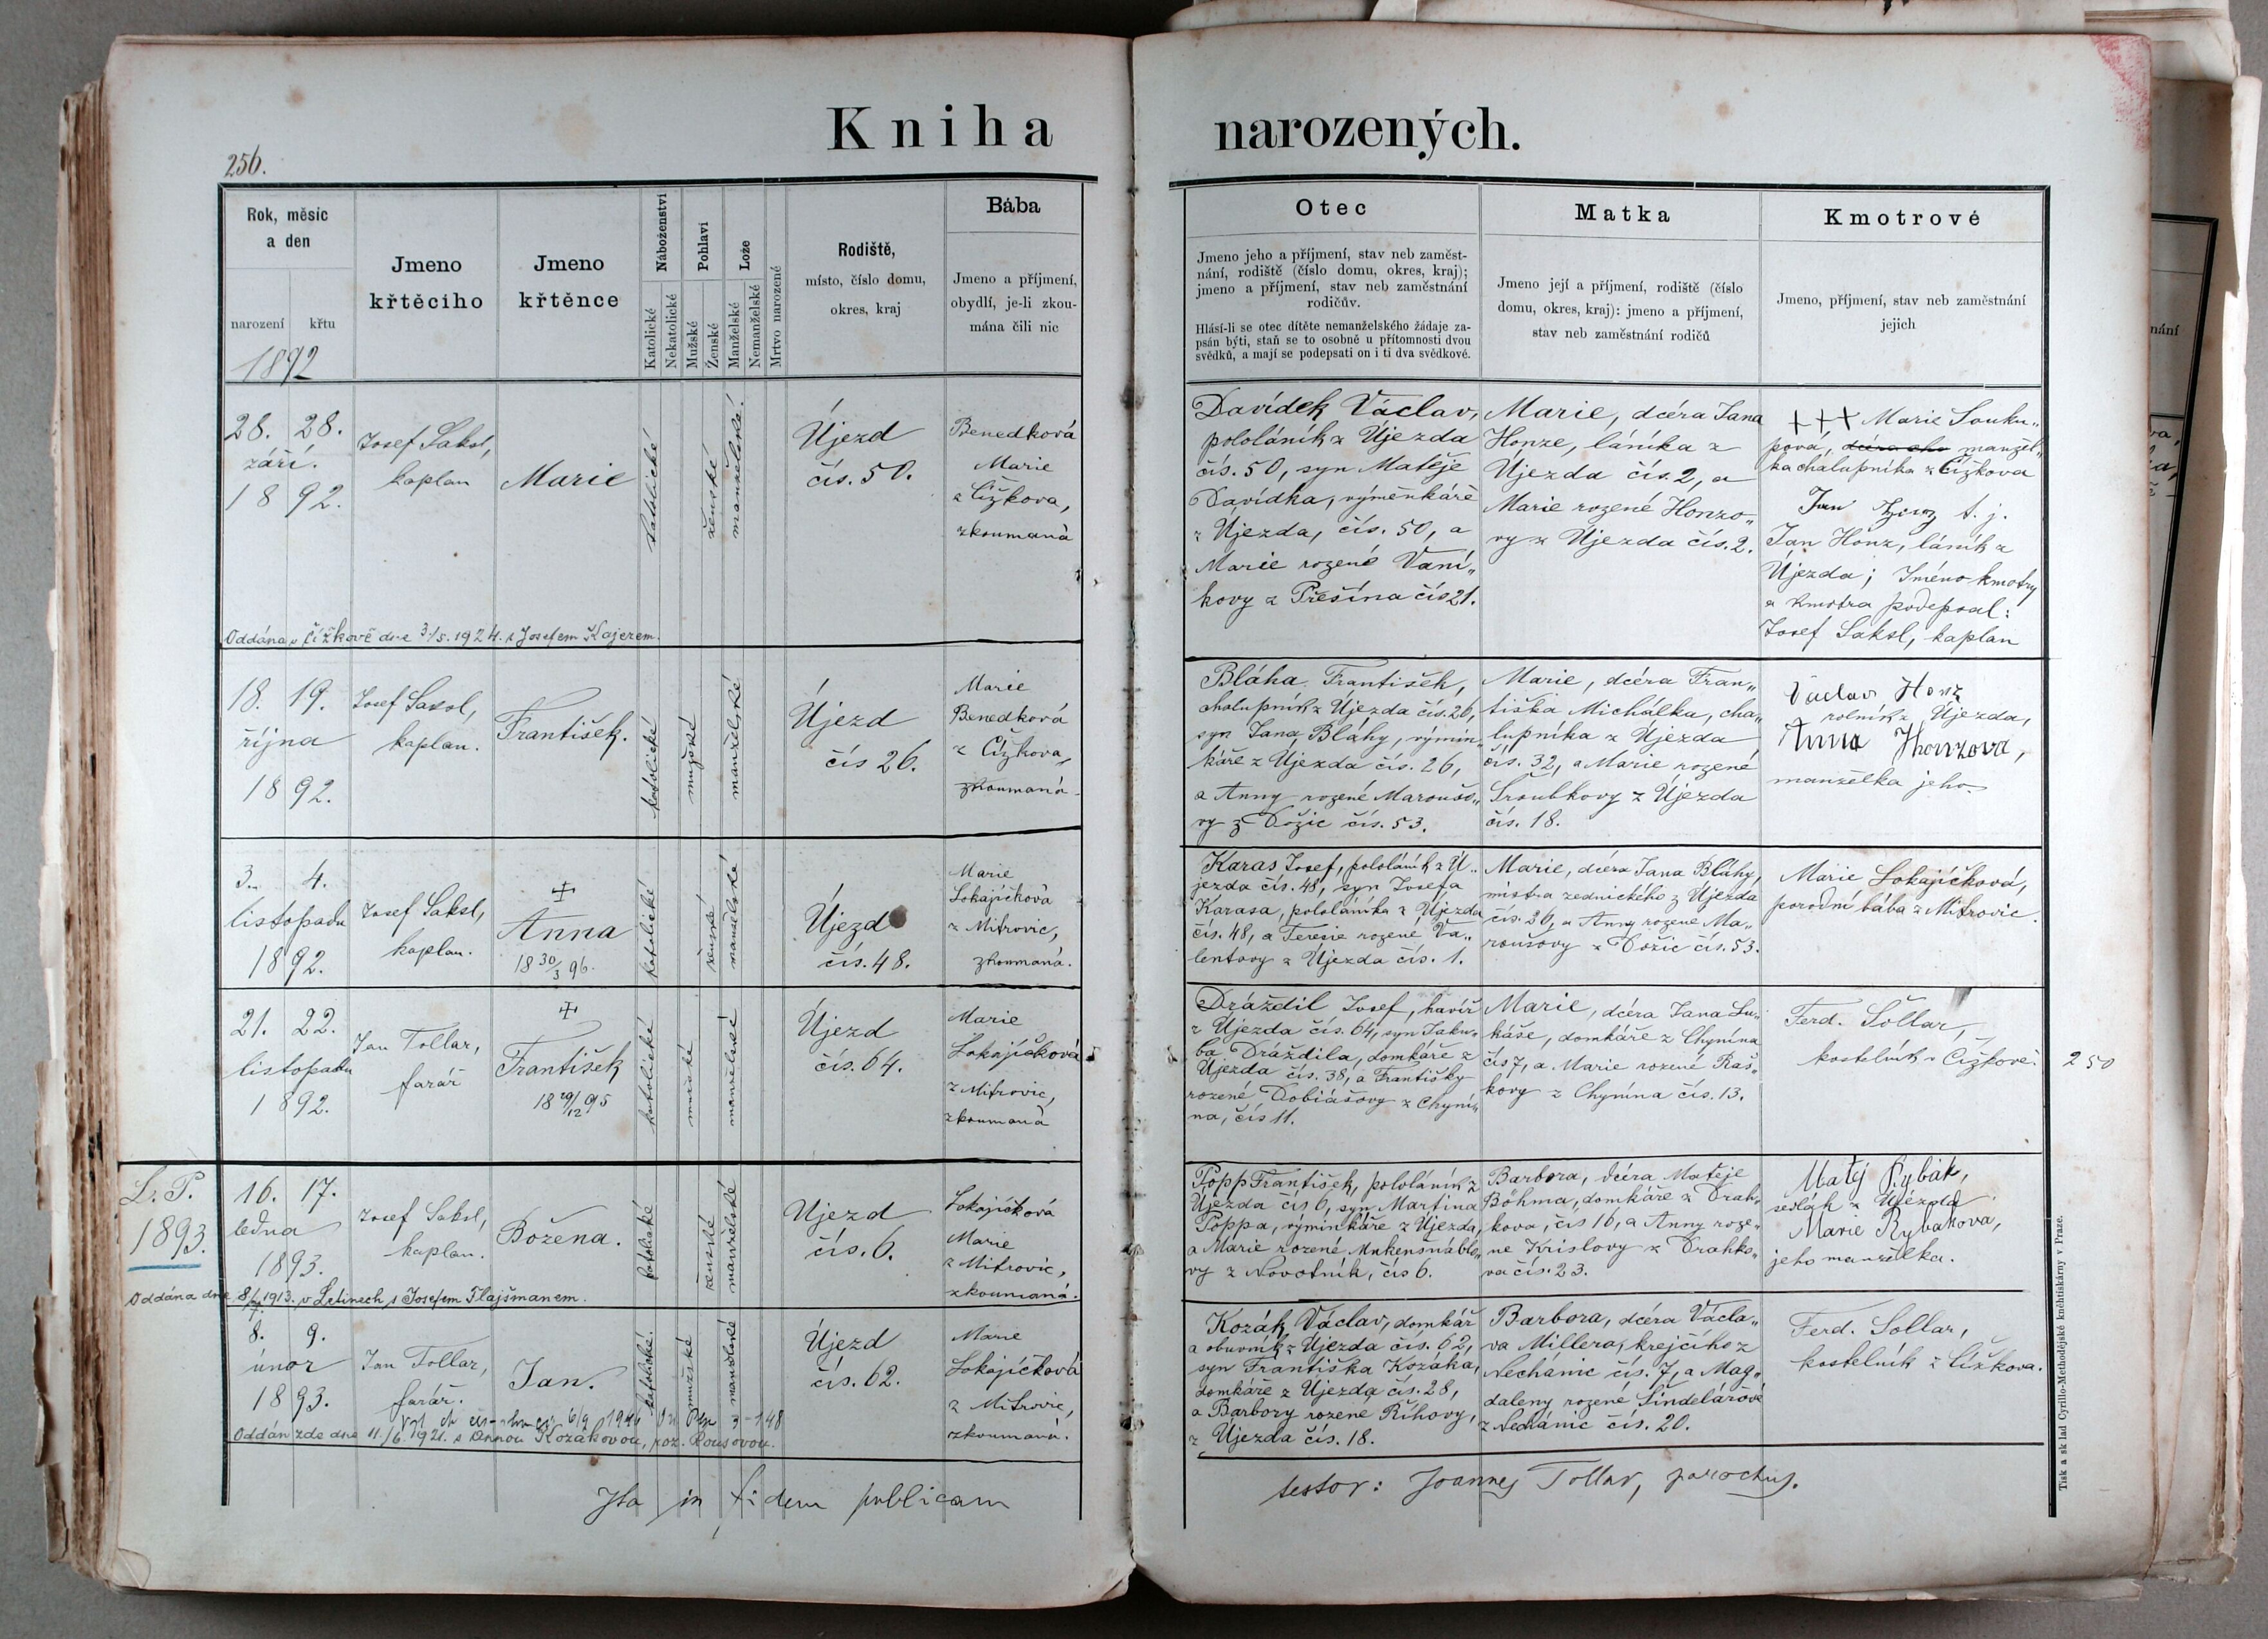 Kniha narozených.
256.
Rok, měsíc
a den
narození
křtu
1892
Jmeno
křtěcího
Jmeno
křtěnce
Náboženství
Katolické
Nekatolické
Pohlaví
Mužské
Ženské
Lože
Manželské
Nemanželské
Mrtvo narozené
Rodiště,
místo, číslo domu,
okres, kraj
Bába
Jmeno a příjmení,
obydlí, je-li zkou-
mána čili nic
Otec
Jmeno jeho a příjmení, stav neb zaměst-
nání, rodiště (číslo domu, okres, kraj);
jmeno a příjmení, stav neb zaměstnání
rodičův.
Hlásí-li se otec dítěte nemanželského žádaje za-
psán býti, staň se to osobně u přítomnosti dvou
svědků, a mají se podepsati on i ti dva svědkové.
Matka
Jmeno její a příjmení, rodiště (číslo
domu, okres, kraj): jmeno a příjmení,
stav neb zaměstnání rodičů
Kmotrové
Jmeno, příjmení, stav neb zaměstnání
jejich
28. 28.
září.
1892.
Josef Saksl,
kaplan
Marie
katolické
ženské
manželské.
Újezd
čís. 50.
Benedková
Marie
z Čížkova,
zkoumaná
Davídek Václav,
pololáník z Újezda
čís. 50, syn Matěje
Davídka, výměnkáře
z Újezda, čís. 50, a
Marie rozené Vaní„
kovy z Přešína čís 21.
Marie, dcéra Jana
Honze, láníka z
Újezda čís. 2, a
Marie rozené Honzo„
vy z Újezda čís. 2.
+++ Marie Souku„
pová, manžel„
ka chalupníka z Čížkova
Jan Honz t. j.
Jan Honz, láník z
Újezda; Jméno kmotry
a kmotra podepsal:
Josef Saksl, kaplan
Oddána v Čížkově dne 3/5. 1924. s Josefem Kajerem.
18. 19.
října
1892.
Josef Saksl,
kaplan.
František.
katolické
mužské
manželské
Újezd
čís 26.
Marie
Benedková
z Čížkova,
zkoumaná
Bláha František,
chalupník z Újezda čís. 26,
syn Jana Bláhy, výmin„
káře z Újezda čís. 26,
a Anny rozené Maroušo„
vy z Dožic čís. 53.
Marie, dcéra Fran„
tiška Michálka, cha„
lupníka z Újezda
čís. 32, a Marie rozené
Šroubkovy z Újezda
čís. 18.
Václav Honz
rolník z Újezda,
Anna Honzova,
manželka jeho.
3. 4.
listopadu
1892.
Josef Saksl,
kaplan.
+
Anna
18 30/3 96.
katolické
ženské
manželské
Újezd
čís. 48.
Marie
Lokajíčková
z Mitrovic,
zkoumaná.
Karas Josef, pololáník z Ú„
jezda čís. 48, syn Josefa
Karasa, pololáníka z Újezda
čís. 48, a Terezie rozené Va„
lentovy z Újezda čís. 1.
Marie, dcéra Jana Bláhy,
mistra zednického z Újezda
čís. 26, a Anny rozené Ma„
roušovy z Dožic čís. 53.
Marie Lokajíčková,
porodní bába z Mitrovic.
21. 22.
listopadu
1892.
Jan Tollar,
farář
+
František
18 29/12 95
katolické
mužské
manželské
Újezd
čís. 64.
Marie
Lokajíčková
z Mitrovic,
zkoumaná
Dráždil Josef, havíř
z Újezda čís. 64, syn Jaku„
ba Dráždila, domkáře z
Újezda čís. 38, a Františky
rozené Dobiášovy z Chyní„
na, čís 11.
Marie, dcéra Jana Lu„
káše, domkáře z Chynína
čís 7, a Marie rozené Raš„
kovy z Chynína čís. 13.
Ferd. Šollar,
kostelník v Čížkově.
250
L. P.
1893.
16. 17.
ledna
1893.
Josef Saksl,
kaplan.
Božena.
katolické
ženské
manželské
Újezd
čís. 6.
Lokajíčková
Marie
z Mitrovic,
zkoumaná.
Popp František, pololáník z
Újezda čís 6, syn Martina
Poppa, výminkáře z Újezda,
a Marie rozené
vy z Novotník, čís 6.
Barbora, dcéra Matěje
Böhma, domkáře z Drah„
kova, čís 16, a Anny roze„
né Krislovy z Drahko„
va čís. 23.
Matěj Rybák,
sedlák z Újezda
Marie Rybakova,
jeho manželka.
Oddána dne 8/7. 1913. v Letinech s Josefem Flajšmanem.
8. 9.
únor
1893.
Jan Tollar,
farář.
Jan.
katolické.
mužské
manželské
Újezd
čís. 62.
Marie
Lokajíčková
z Mitrovic,
zkoumaná.
Kozák Václav, domkář
a obuvník z Újezda čís. 62,
syn Františka Kozáka,
domkáře z Újezda čís. 28,
a Barbory rozené Říhovy,
z Újezda čís. 18.
Barbora, dcéra Václa„
va Millera, krejčího z
Nechánic čís. 7, a Mag„
daleny rozené Šindelářové
z Nechánic čís. 20.
Ferd. Sollar,
kostelník z Čížkova.
Oddán zde dne 11./6. 1921. s Annou Kozákovou, roz. Rousovou.
Ita in fidem publicam
testor: Joannes Tollar, parochus.
Tisk a sklad Cyrillo-Methodějské knéhtiskárny v Praze.